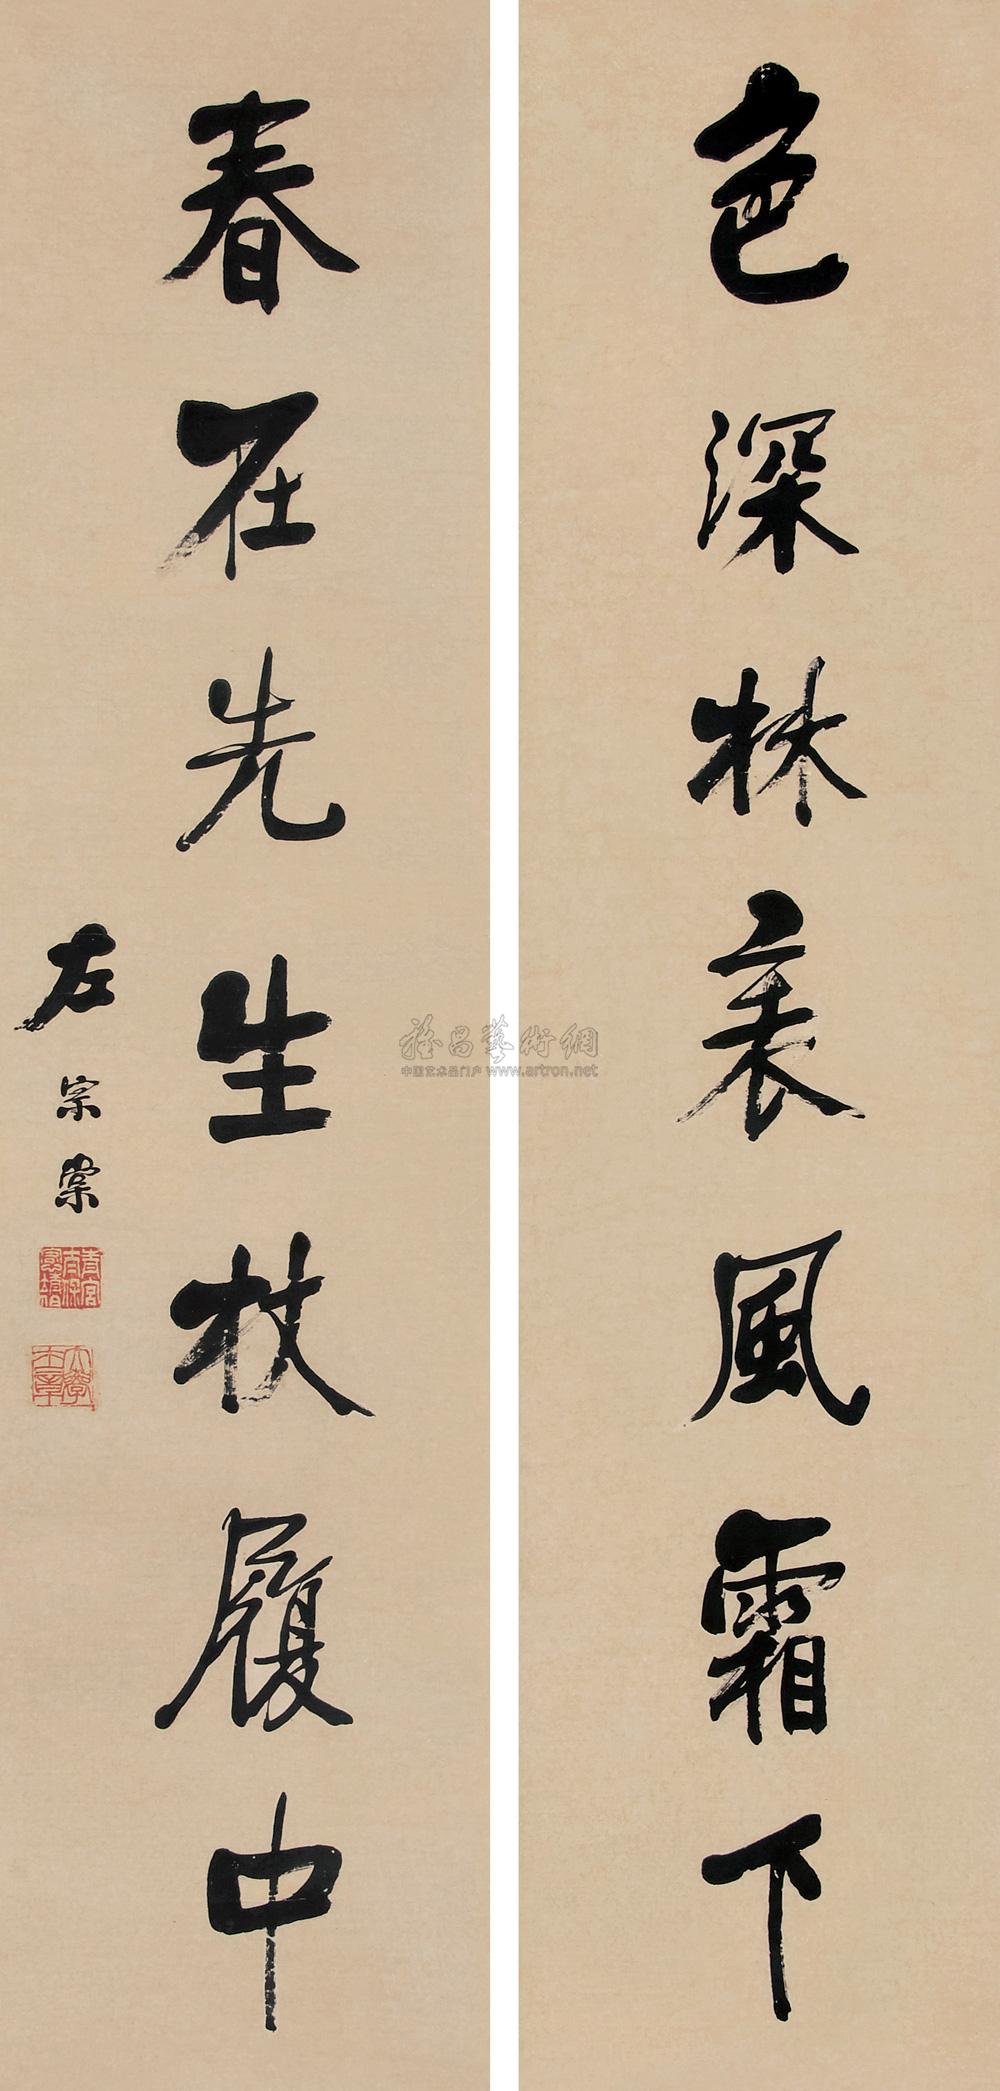 色深林表風霜下
春在先生杖履中
左宗棠
青宮太保恪靖
大學士章
雅昌藝術網
中国艺术品门户 www.artron.net